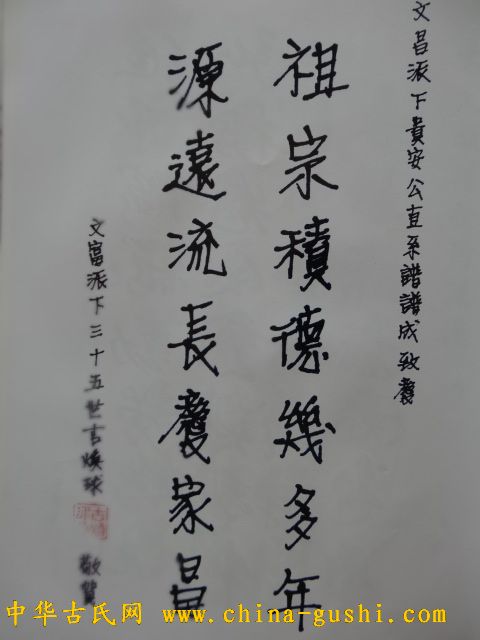 文昌派下貴安公直系譜譜成致慶
祖宗積德幾多年
源遠流長慶家昌
文富派下三十五世古煥球
敬賀
中华古氏网 www.china-gushi.com